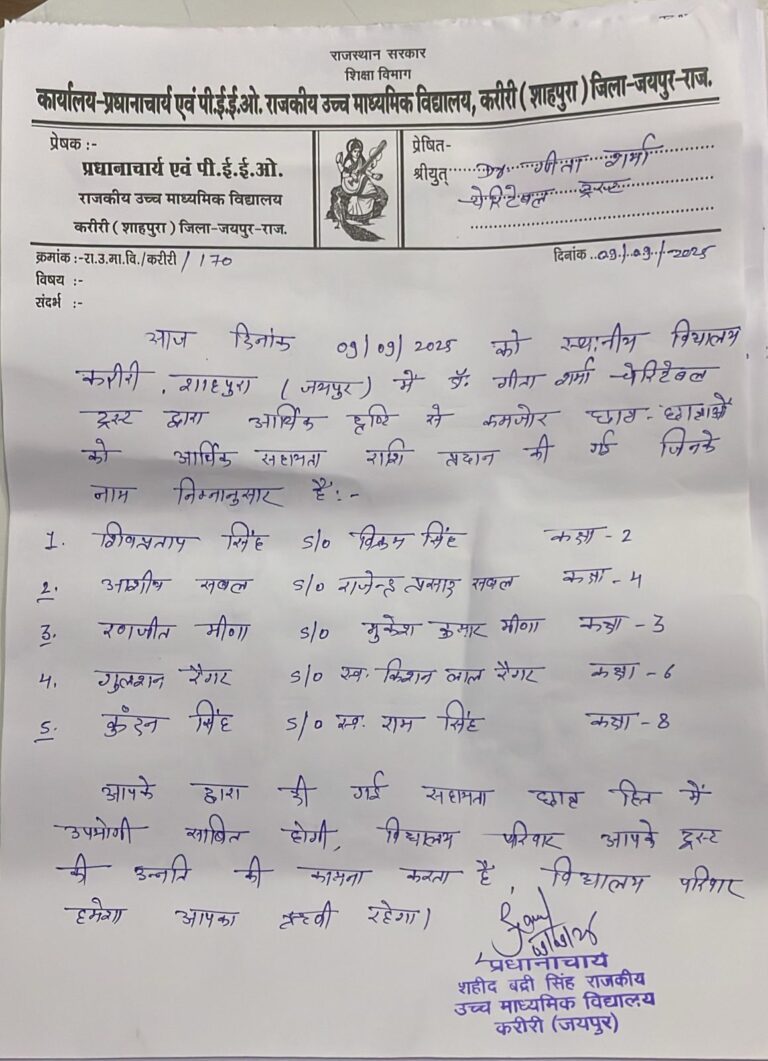 राजस्थान सरकार
शिक्षा विभाग
कार्यालय-प्रधानाचार्य एवं पी.ई.ई.ओ. राजकीय उच्च माध्यमिक विद्यालय, करीरी ( शाहपुरा ) जिला-जयपुर-राज.
प्रेषक :-
प्रधानाचार्य एवं पी.ई.ई.ओ.
राजकीय उच्च माध्यमिक विद्यालय
करीरी ( शाहपुरा ) जिला-जयपुर-राज.
प्रेषित-
श्रीयुत् Dr गीता शर्मा
चेरिटेबल ट्रस्ट
क्रमांक :-रा.उ.मा.वि./करीरी / 170
दिनांक 09/09/2025
विषय :-
संदर्भ :-
आज दिनांक 09/09/2025 को स्थानीय विधालय
करीरी, शाहपुरा (जयपुर) में डॉ. गीता शर्मा चेरिटेबल
ट्रस्ट द्वारा आर्थिक दृष्टि से कमजोर छात्र-छात्राओं
को आर्थिक सहायता राशि प्रदान की गई जिनके
नाम निम्नानुसार हैं:-
1. शिवप्रताप सिंह S/O विक्रम सिंह कक्षा - 2
2. आशीष सबल S/O राजेन्द्र प्रसाद सबल कक्षा - 4
3. रणजीत मीणा S/O मुकेश कुमार मीणा कक्षा - 3
4. गुलशन रैगर S/O स्व. किशन लाल रैगर कक्षा - 6
5. कुंदन सिंह S/O स्व. राम सिंह कक्षा - 8
आपके द्वारा की गई सहायता छात्र हित में
उपयोगी साबित होगी, विधालय परिवार आपके ट्रस्ट
की उन्नति की कामना करता है, विधालय परिवार
हमेशा आपका ऋणी रहेगा।
प्रधानाचार्य
शहीद बद्री सिंह राजकीय
उच्च माध्यमिक विद्यालय
करीरी (जयपुर)